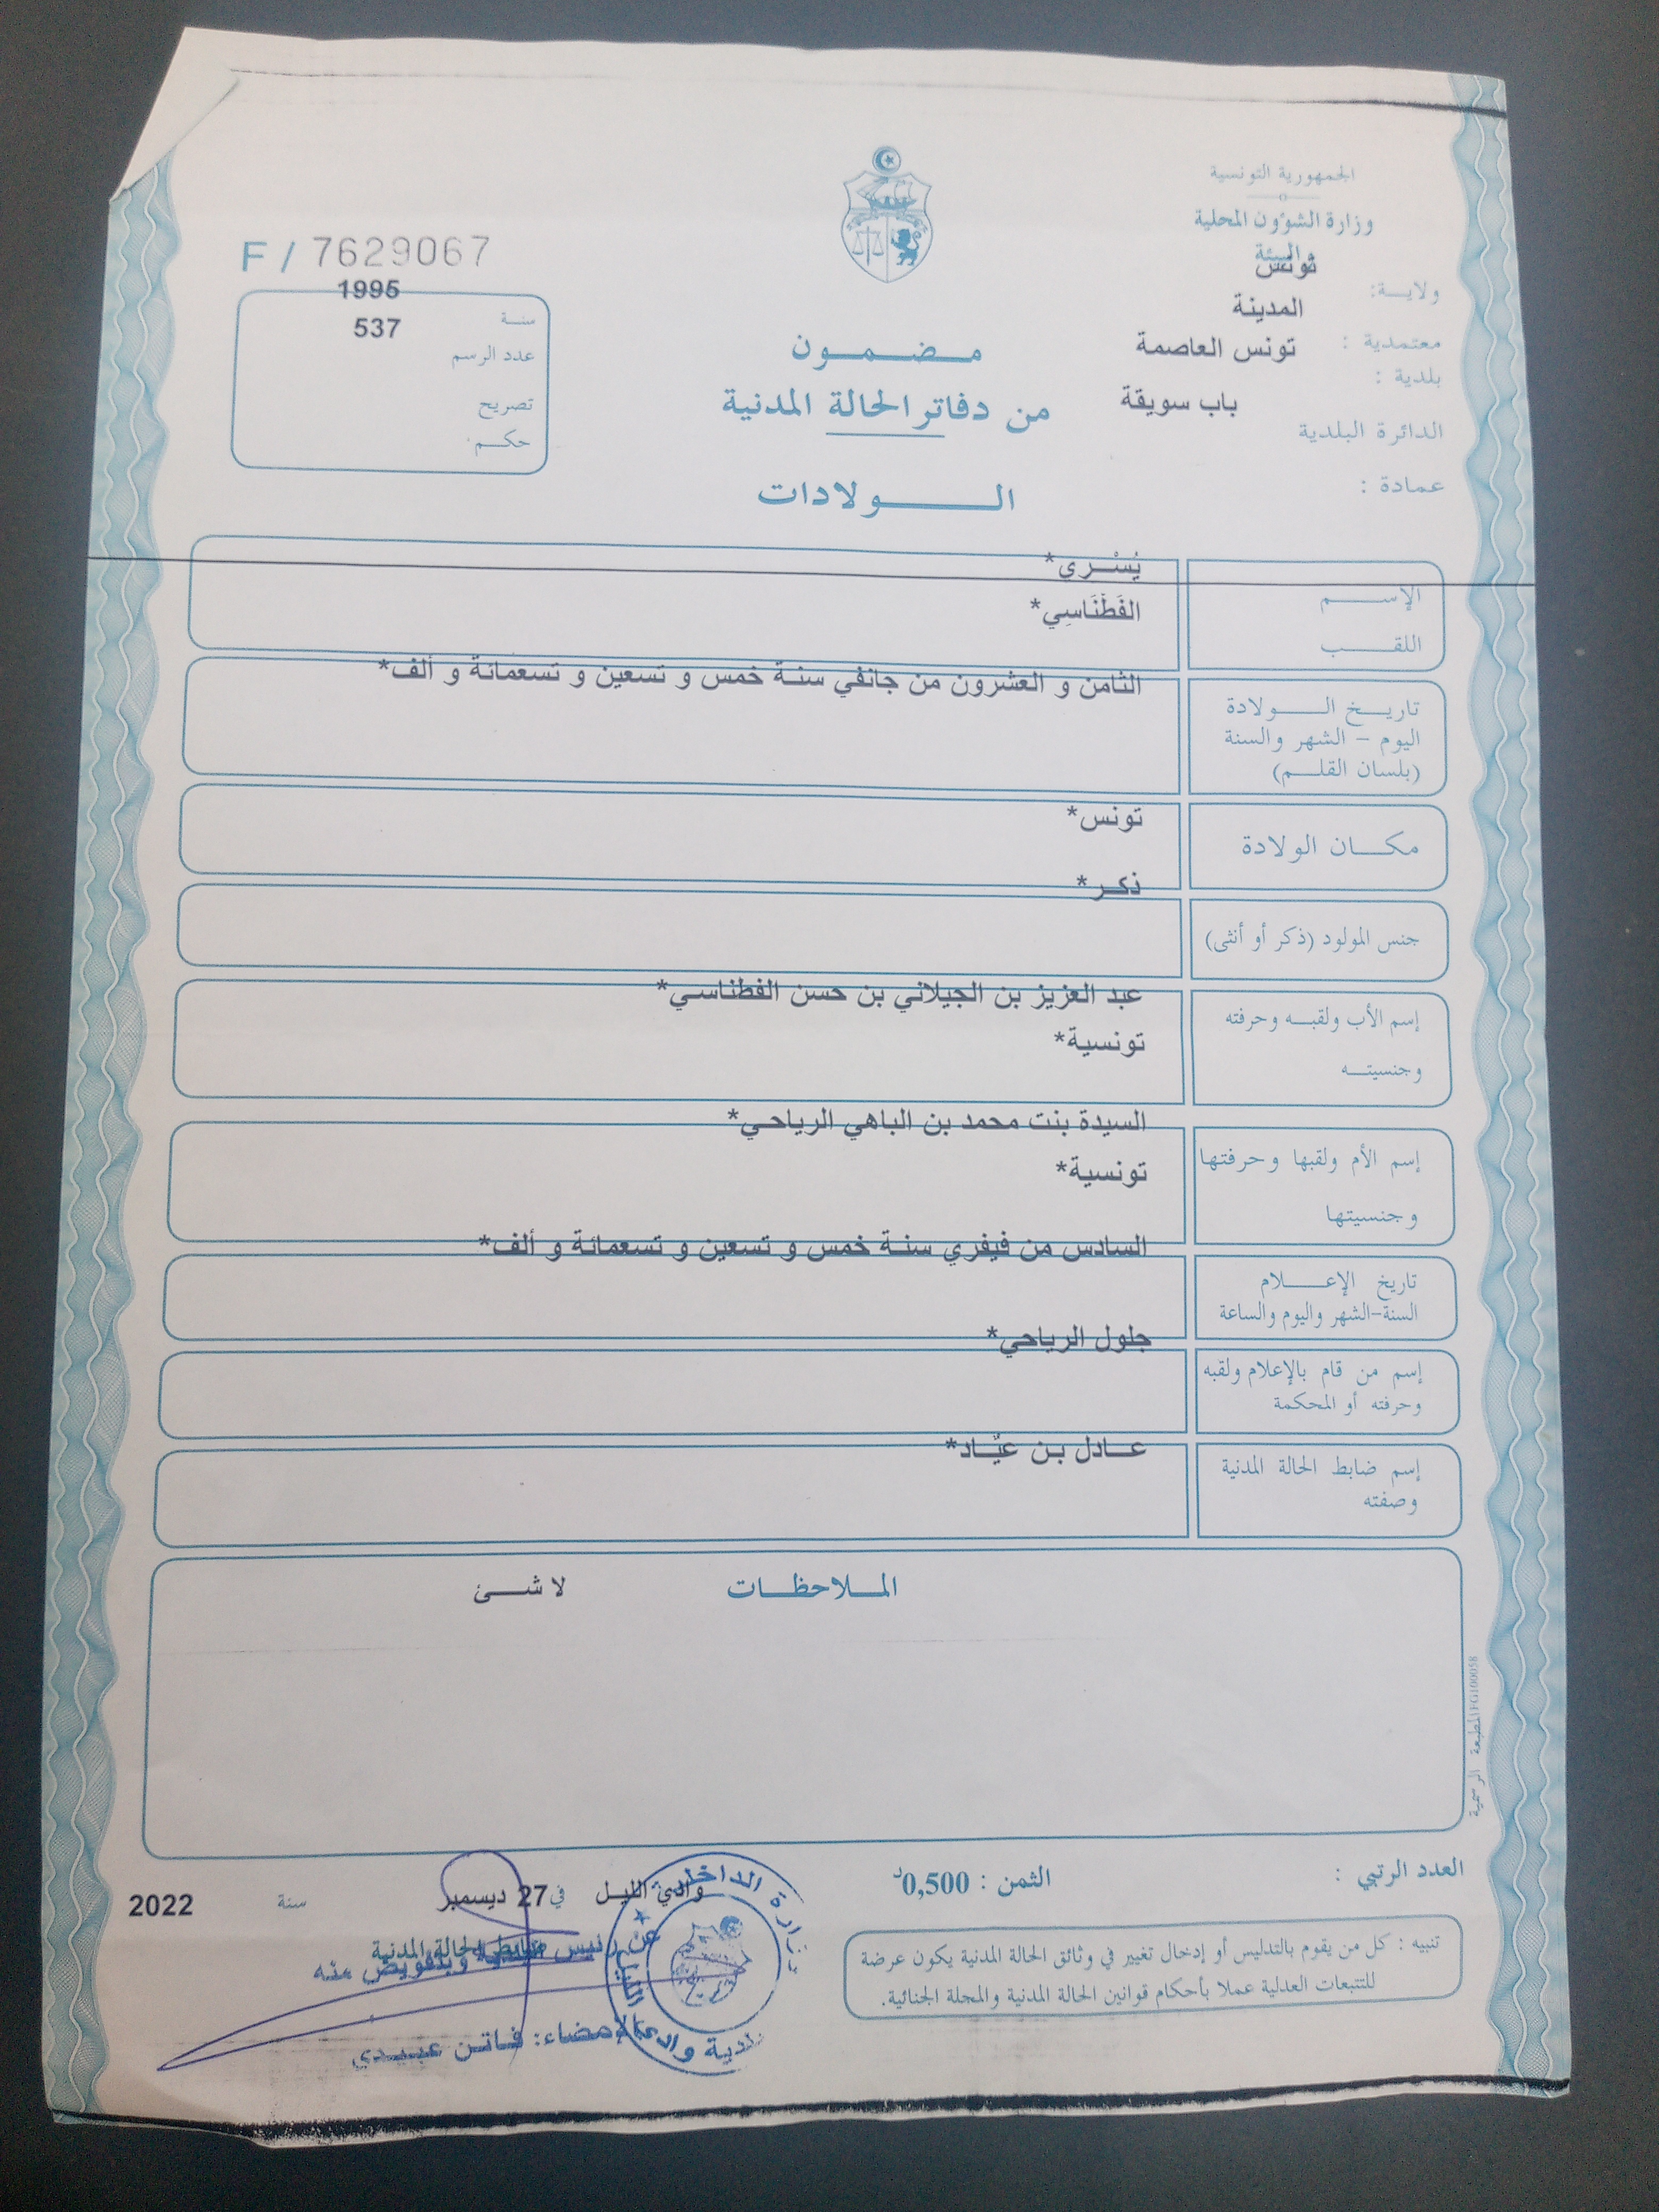 الجمهورية التونسية
وزارة الشؤون المحلية
والبيئة
ولايـــة: تونس
المدينة
معتمدية : تونس العاصمة
بلدية :
باب سويقة
الدائرة البلدية
عمادة :
F / 7629067
1995
سنــة
537
عدد الرسم
تصريح
حكــم
مــضــمــون
من دفاتر الحالة المدنية
الـــولادات
الإســـم يُسْــرى*
اللقـــب الفَطْنَاسِي*
الثامن و العشرون من جانفي سنـة خمس و تسعين و تسعمائة و ألف*
تاريــخ الـــولادة
اليوم - الشهر والسنة
(بلسان القلــم)
تونس*
مكـــان الولادة
ذكـر*
جنس المولود (ذكر أو أنثى)
عبد العزيز بن الجيلاني بن حسن الفطناسـي*
إسم الأب ولقبــه وحرفته
تونسية*
وجنسيتــه
السيدة بنت محمد بن الباهي الرياحـي*
إسم الأم ولقبها وحرفتها
تونسية*
وجنسيتها
السادس من فيفري سنـة خمس و تسعين و تسعمائة و ألف*
تاريخ الإعـــلام
السنة-الشهر واليوم والساعة
جلول الرياحي*
إسم من قام بالإعلام ولقبه
وحرفته أو المحكمة
عــادل بـن عيّـاد*
إسم ضابط الحالة المدنية
وصفته
الملاحظــات لا شــئ
المطبعة الرسمية FG100058
العدد الرتبي :
الثمن : 0,500د
وادي الليـل في 27 ديسمبر سنة 2022
ضابط الحالة المدنية
عن رئيس البلدية وبتفويض منه
الإمضاء: فـاتـن عبيـدي
وزارة الداخلية
بلدية وادي الليل
تنبيه : كل من يقوم بالتدليس أو إدخال تغيير في وثائق الحالة المدنية يكون عرضة
للتتبعات العدلية عملا بأحكام قوانين الحالة المدنية والمجلة الجنائية.